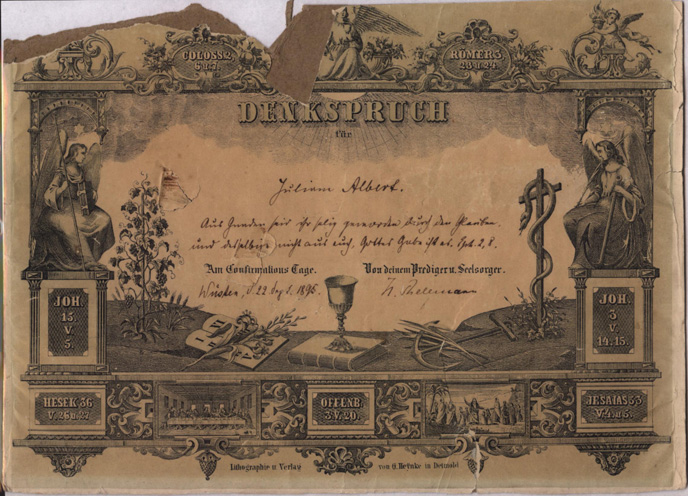 COLOSS. 2,
6 u. 7.
RÖMER 3,
23 u. 24.
DENKSPRUCH
für
Juliane Albert.
Aus Gnaden seid ihr selig geworden durch den Glauben,
und dasselbige nicht aus euch, Gottes Gabe ist es. Eph. 2, 8.
Am Confirmations Tage.
Von deinem Prediger u. Seelsorger.
Wüsten, d. 22 Sept. 1895.
JOH.
15
V.
5.
JOH.
3
V.
14.15.
HESEK. 36
V. 26 u. 27.
OFFENB.
3 V. 20.
JESAIAS 53
V. 4 u. 5.
Lithographie u Verlag
von G. Heynke in Detmold